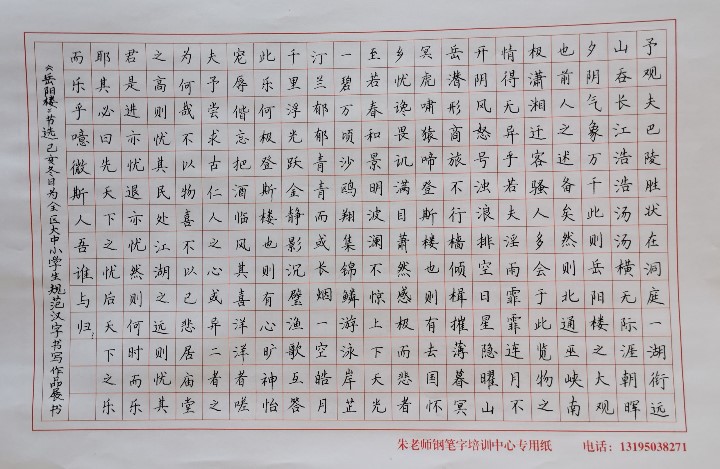 予观夫巴陵胜状在洞庭一湖衔远
山吞长江浩浩汤汤横无际涯朝晖
夕阴气象万千此则岳阳楼之大观
也前人之述备矣然则北通巫峡南
极潇湘迁客骚人多会于此览物之
情得无异乎若夫淫雨霏霏连月不
开阴风怒号浊浪排空日星隐曜山
岳潜形商旅不行樯倾楫摧薄暮冥
冥虎啸猿啼登斯楼也则有去国怀
乡忧谗畏讥满目萧然感极而悲者
至若春和景明波澜不惊上下天光
一碧万顷沙鸥翔集锦鳞游泳岸芷
汀兰郁郁青青而或长烟一空皓月
千里浮光跃金静影沉璧渔歌互答
此乐何极登斯楼也则有心旷神怡
宠辱偕忘把酒临风其喜洋洋者嗟
夫予尝求古仁人之心或异二者之
为何哉不以物喜不以己悲居庙堂
之高则忧其民处江湖之远则忧其
君是进亦忧退亦忧然则何时而乐
耶其必曰先天下之忧后天下之乐
而乐乎噫微斯人吾谁与归?
《岳阳楼》节选 己亥冬日为全区大中小学生规范汉字书写作品展书
朱老师钢笔字培训中心专用纸 电话：13195038271